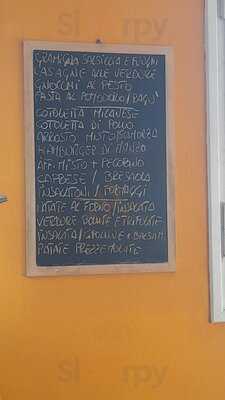 GRAMIGNA SALSICCIA E FUNGHI
LASAGNE ALLE VERDURE
GNOCCHI AL PESTO
PASTA AL POMODORO/RAGU'
COTOLETTA MILANESE
COTOLETTA DI POLLO
ARROSTO MISTO
HAMBURGER DI MANZO
AFF. MISTO + PECORINO
CAPRESE / BRESAOLA
INSALATONI / FORMAGGI
PATATE AL FORNO/INSALATA
VERDURE COTTE E TRIFOLATE
INSALATA/
PATATE PREZZEMOLATE